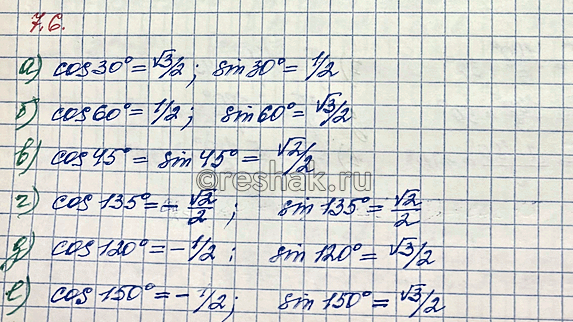 7.6.
а) cos30° = √3/2; sin30° = 1/2
б) cos60° = 1/2; sin60° = √3/2
в) cos45° = sin45° = √2/2
©reshak.ru
г) cos135° = -√2/2; sin135° = √2/2
д) cos120° = -1/2; sin120° = √3/2
е) cos150° = -1/2; sin150° = √3/2